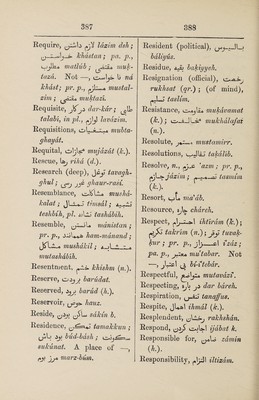 387
Require, لازم داشتن lázim dsh ;
خواستن khástan ; pa. p.,
مطلوب matlúb ; مقتضى muḳ-
tazá. Not —, نا خواست ná
khást; pr. p., مستلزم mustal-
zim ; مقتضى muḳtazí.
Requisite, در کار dar-kár ; طلب
talabí, in pl., لوازم lavázim.
Requisitions, مبتغيات mubta-
ghayát.
Requital, مجازات mujázát (k.).
Rescue, رها rihá (d.).
Research (deep), توغل tavagh-
ghul ; غور رسى ghaur-rasí.
Resemblance, مشاكلت mushá-
kalat ; تمثال timsál ; تشبيه
teshbíh, pl. تشابيه tashábíh.
Resemble, مانستن mánistan ;
pr. p., همانند ham-mánand ;
مشاكل mushákil ; متشابه
mutashábih.
Resentment, خشم khishm (n.).
Reserve, برودت barúdat.
Reserved, برود barúd (b.).
Reservoir, حوض hauz.
Reside, ساكن بودن sákin b.
Residence, تمكن tamakkun ;
بود باش búd-básh ; سكونت
sukúnat. A place of —,
مرز بوم marz-búm.
388
Resident (political), باليوس
báliyús.
Residue, بقيه baḳíyyeh.
Resignation (official), رخصت
rukhsat (gr.) ; (of mind),
تسليم taslím.
Resistance, مقاومت muḳávamat
(k.) ; مخالفت mukhálafat
(n.).
Resolute, مستمر mustamirr.
Resolutions, تقاليب taḳálíb.
Resolve, n., عزم 'azm ; pr. p.,
جازم jázim ; تصميم tasmím
(k.).
Resort, مأب ma'áb.
Resource, چاره chárch.
Respect, احترام ihtirám (k.) ;
تكريم takrím (n.) ; توقر tuvaḳ-
ḳur ; pr. p., اعزاز i'záz ;
pa. p., معتبر mu'tabar. Not
—, بى اعتبار bí-i'tebár.
Respectful, متواضع mutavází'.
Respecting, در باره dar báreh.
Respiration, تنفس tanaffus.
Respite, اهمال ihmál (k.).
Resplendent, رخشان rakhshán.
Respond, اجابت كردن ijábat k.
Responsible for, ضامن zámin
(k.).
Responsibility, التزام iltizám.